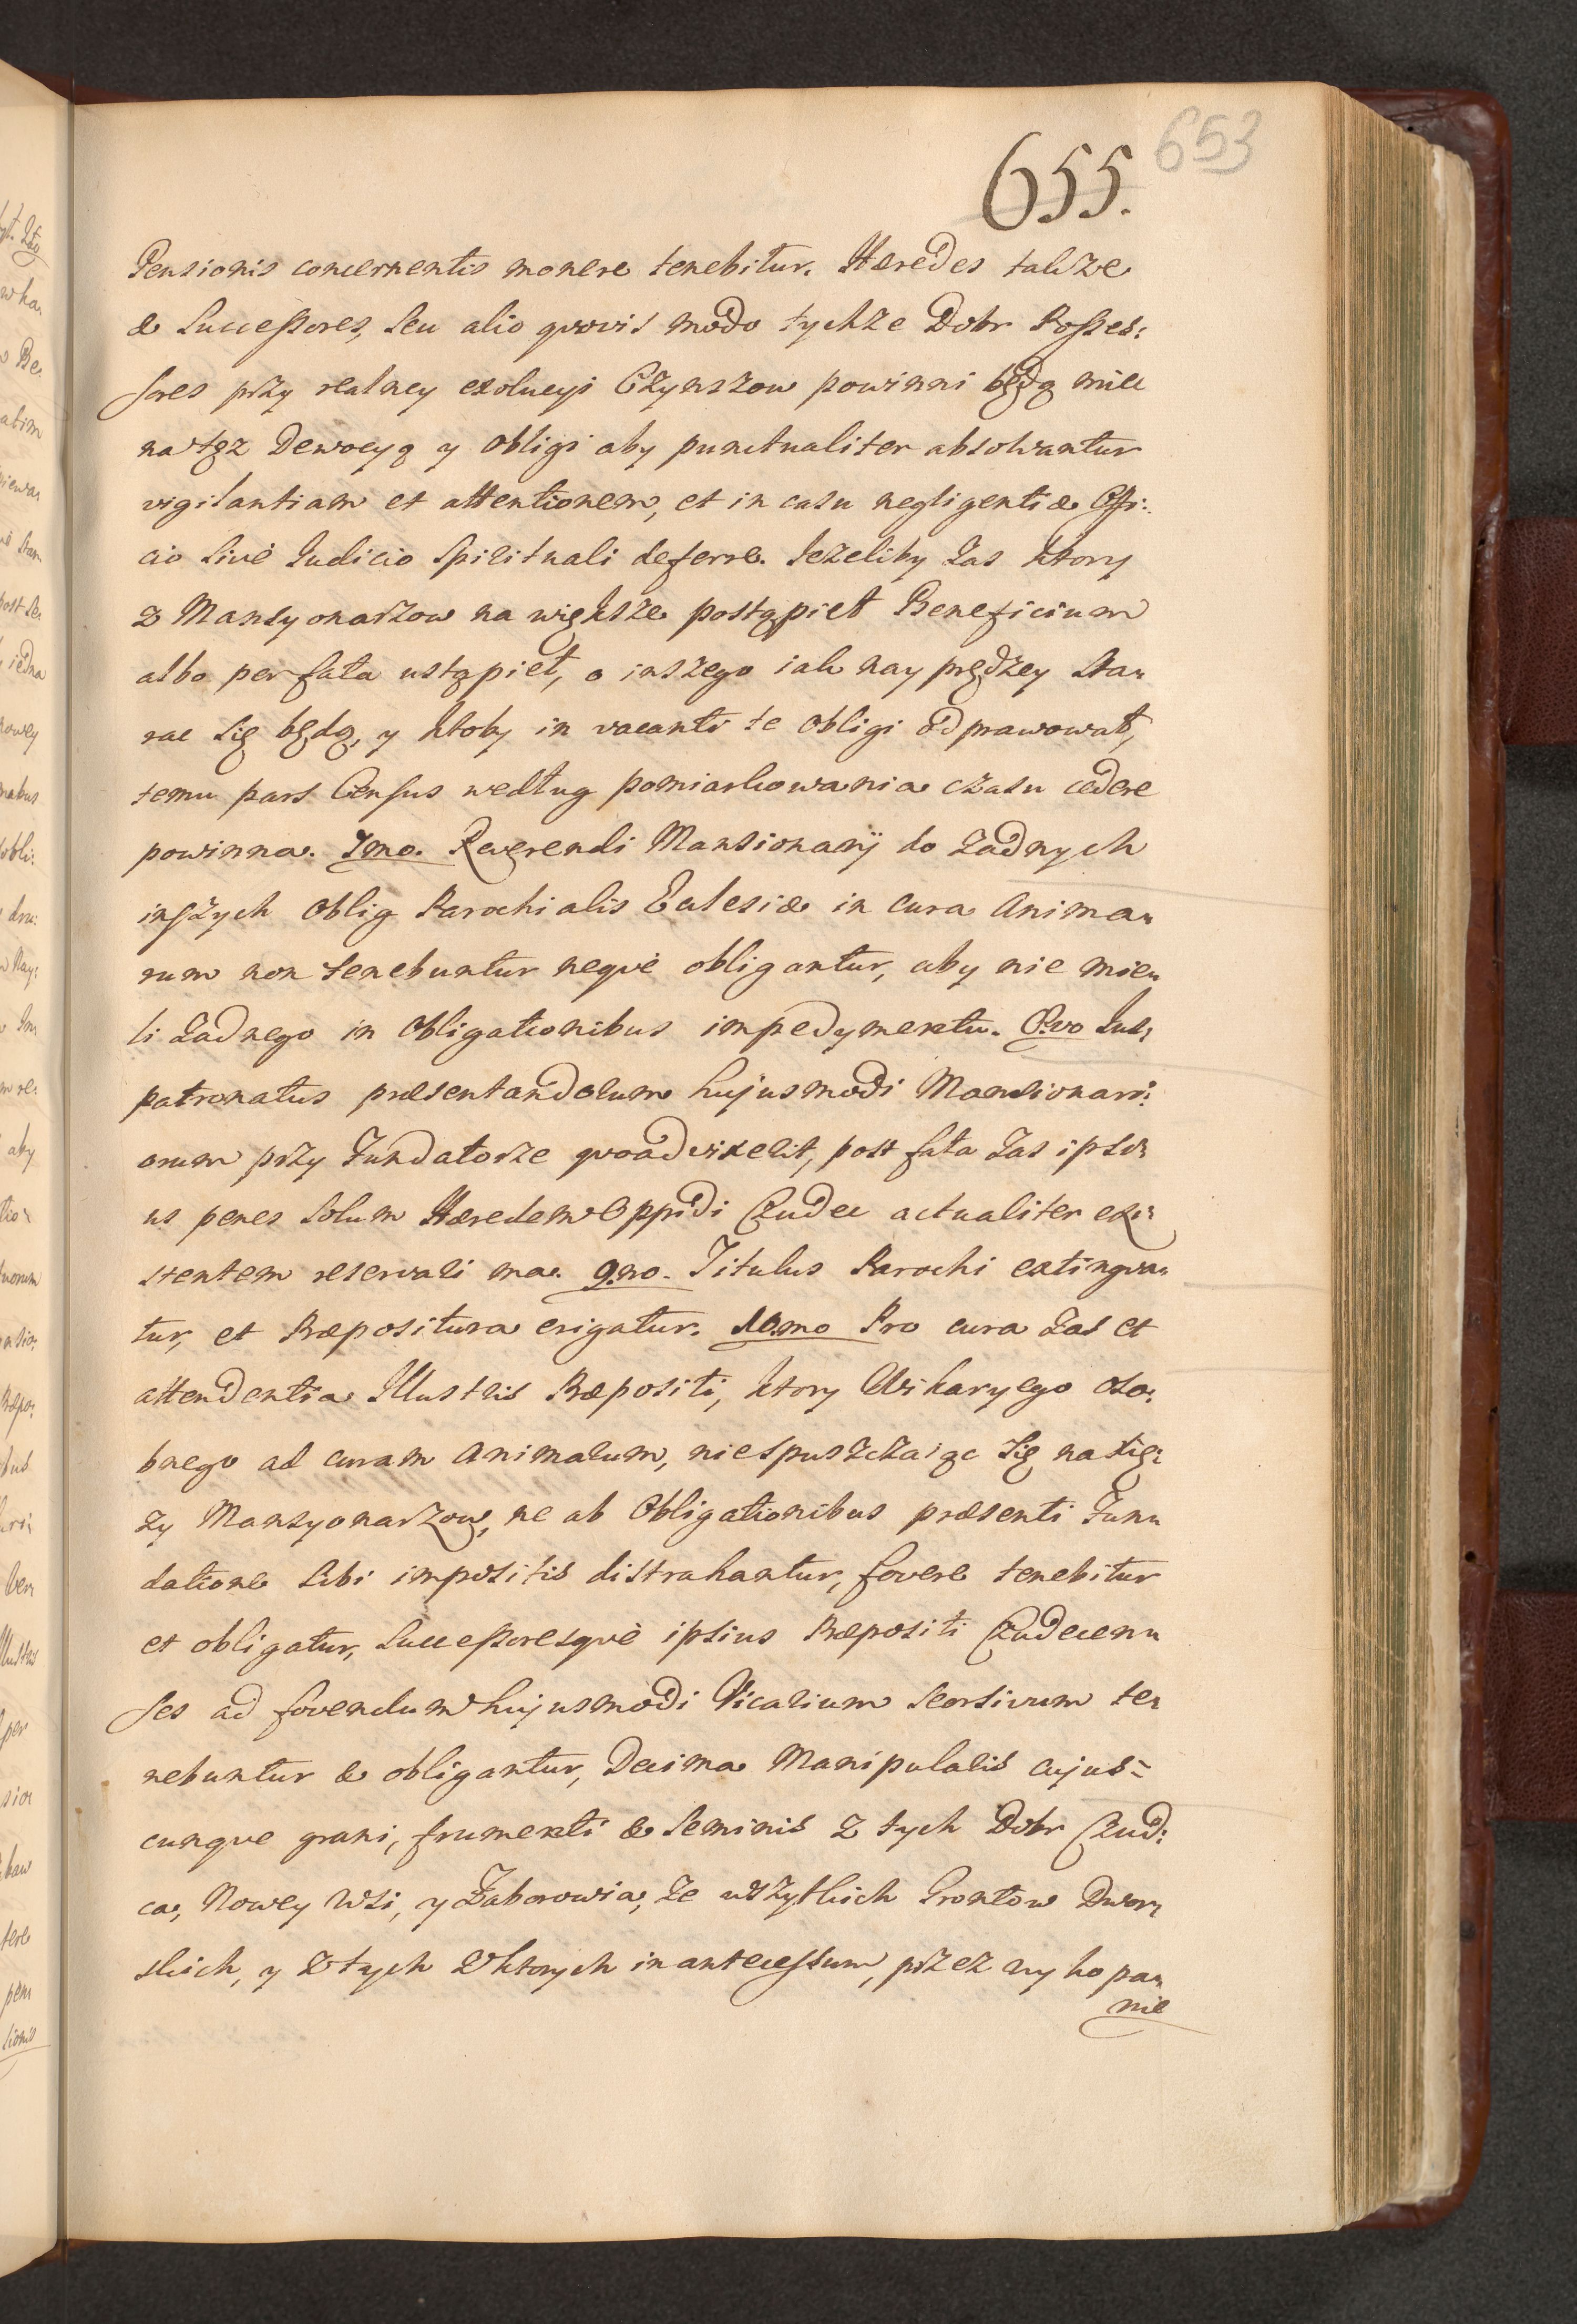 653
655.
Pensionis concernentis monere tenebitur. Hæredes takze
& Successores, seu alio qvovis modo tychze Dobr Posses:
sores przy realney exolucyi Czynszow powinni będą miec
na tęz Dewocyą y obligi aby punctualiter absolvantur
vigilantiam et attentionem, et in casu negligentiæ Offi:
cio sivè Iudicio Spirituali deferre. Iezeliby zas ktory
z Mansyonarzow na większe postąpieł Beneficium
albo per fata ustąpieł, o inszego iak nayprędzey sta„
rac się będą, y ktoby in vacanti te obligi odprawował,
temu pars Census według pomiarkowania czasu cedere
powinna. 7mo. Reverendi Mansionarÿ do zadnych
inszych oblig Parochialis Eclesiæ in cura Anima„
rum non tenebuntur neqvè obligantur, aby nie mie„
li zadnego in obligationibus impedymentu. 8vo Jus,
patronatus præsentandorum hujusmodi Mansionari:
orum przy Fundatorze qvoad vixerit, post fata zas ipsi„
us penes solum Hæredem Oppidi Czudec actualiter exi„
stentem reservari ma. 9.no. Titulus Parochi extingva„
tur, et Præpositura erigatur. 10.mo Pro cura zas et
attendentia Illustris Præpositi, ktory Wikaryego oso:
bnego ad curam Animarum, niespuszczaiąc się na xię:
zy Mansyonarzow, ne ab Obligationibus præsenti Fun„
datione sibi impositis distrahantur, fovere tenebitur
et obligatur, Successoresqvè ipsius Præpositi Czudecen„
ses ad fovendum hujusmodi Vicarium seorsivum te„
nebuntur & obligantur, Decima Manipularis cujus=
cunqve grani, frumenti & seminis z tych Dobr Czud:
ca, Nowey Wsi, y Zaborowia, ze wszytkich Grontow Dwor„
skich, y z tych z ktorych in antecessum, przez wykopa„
nie